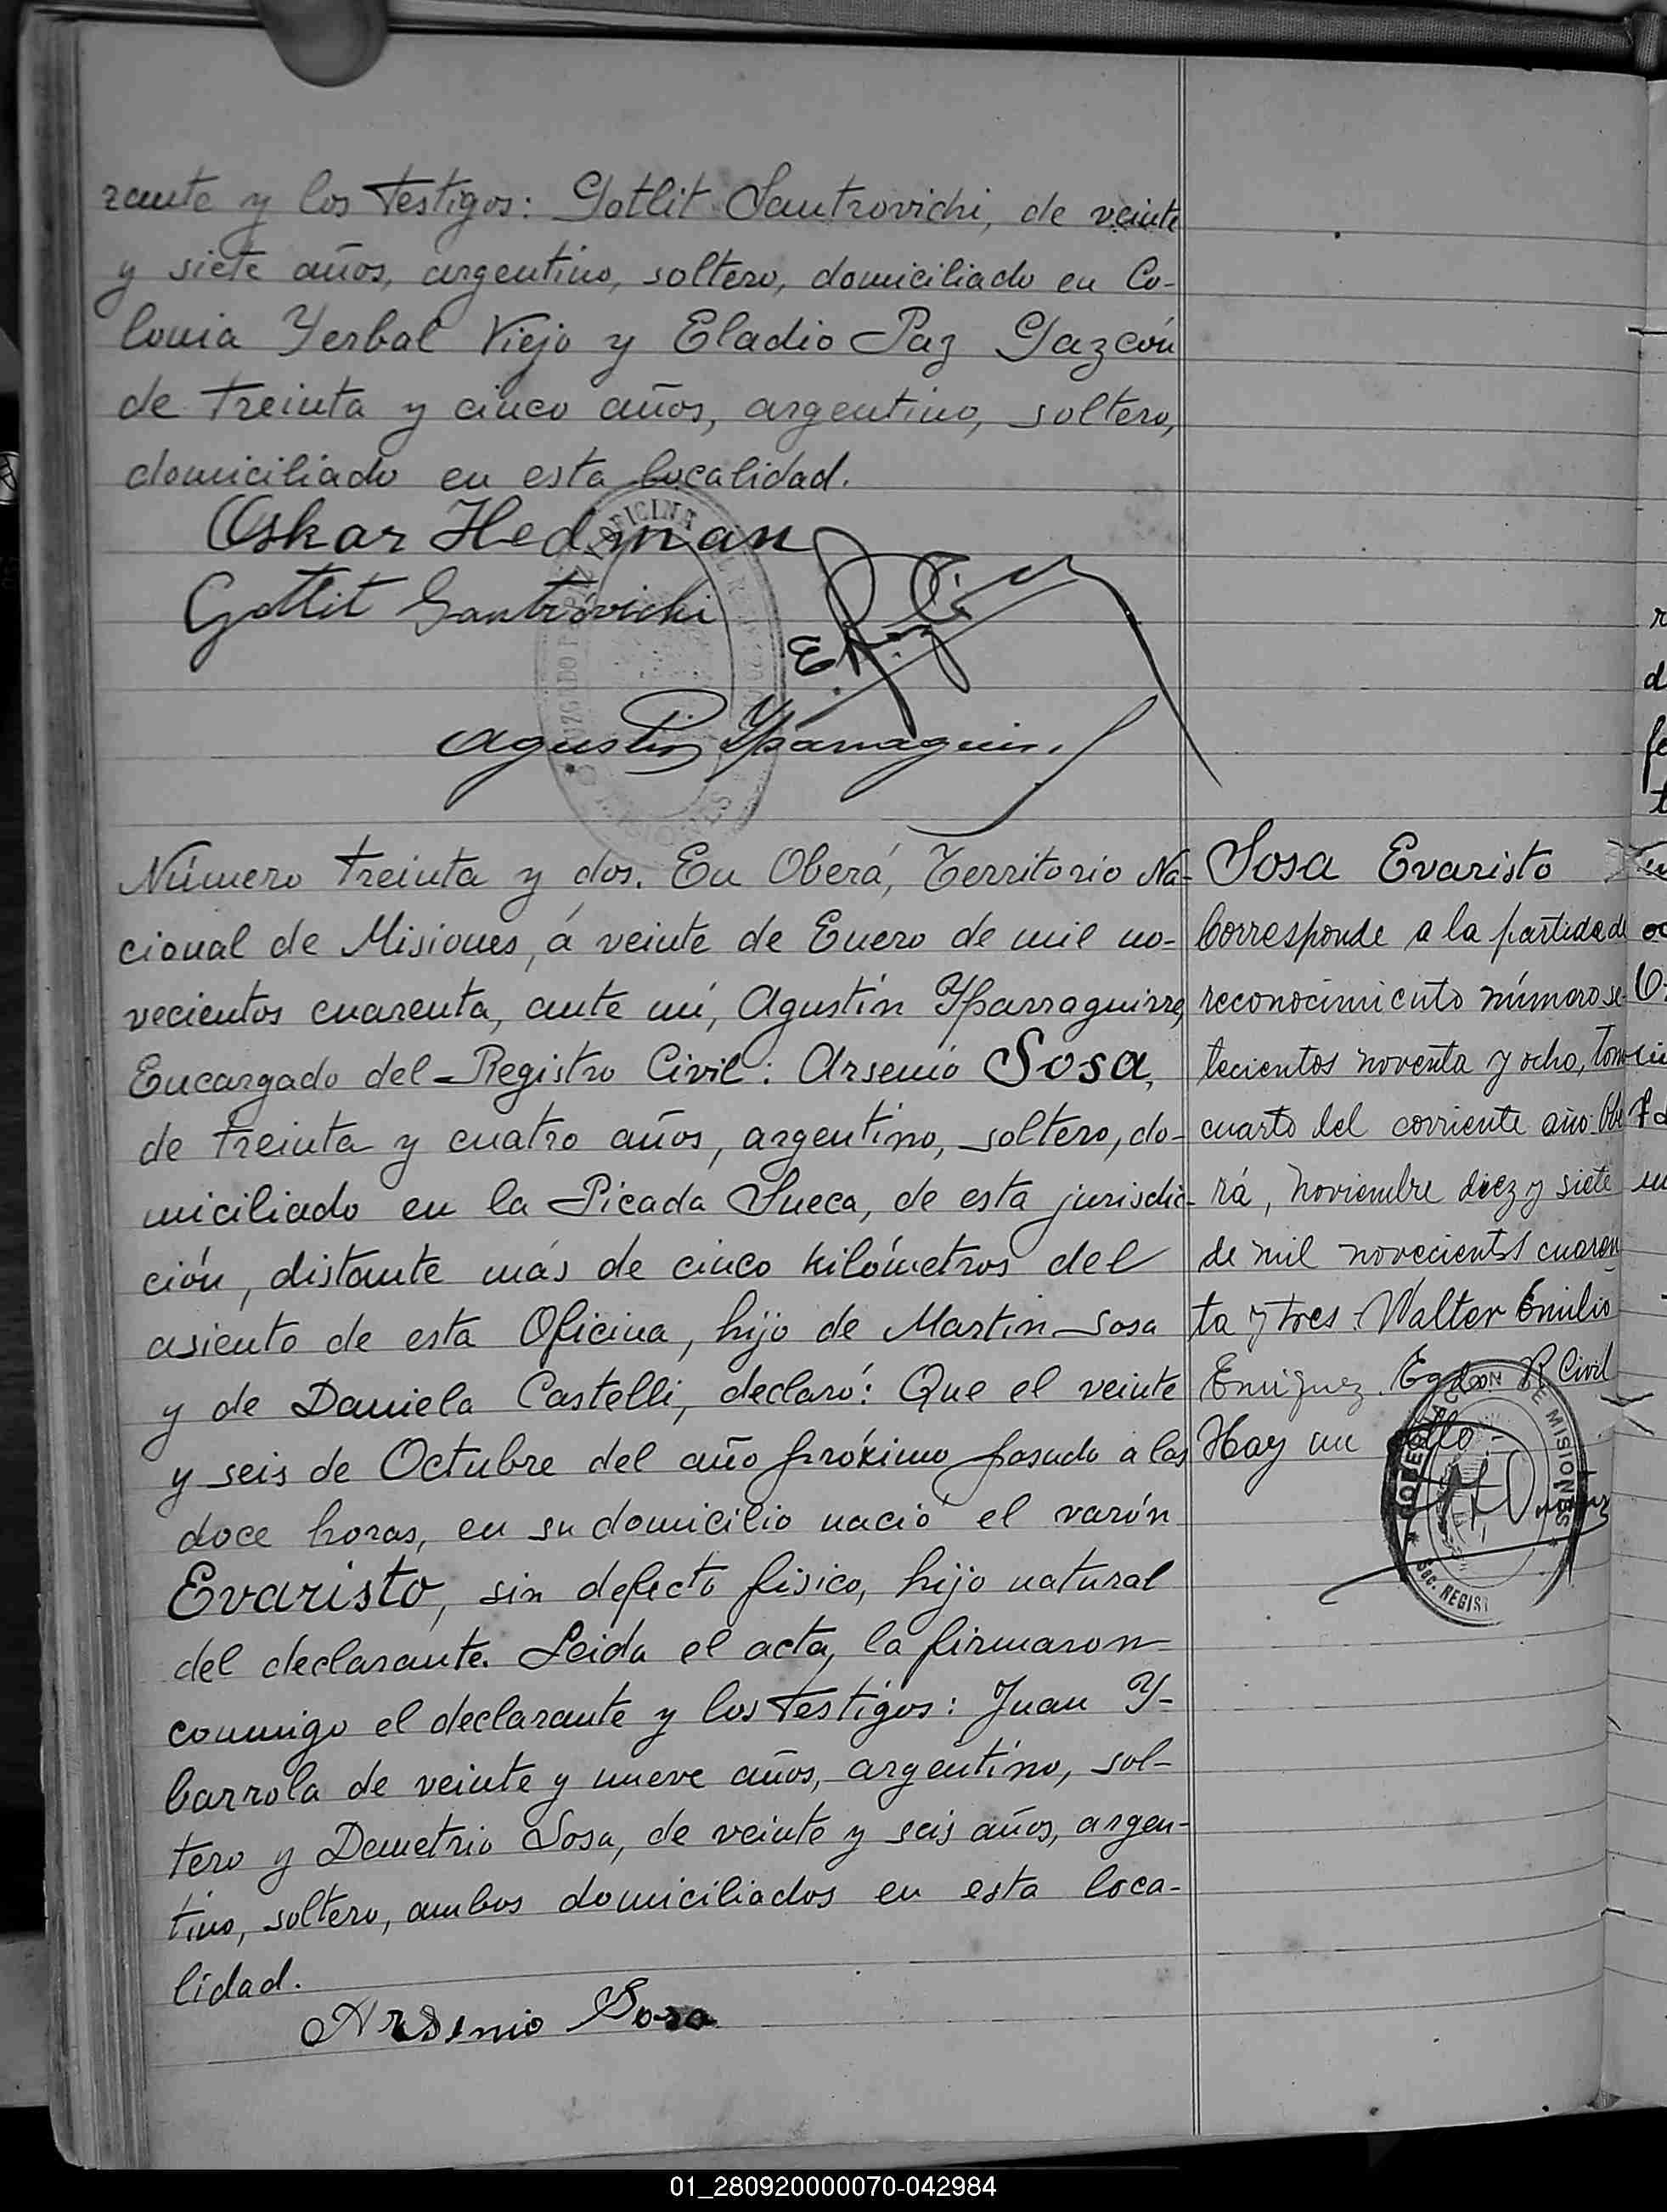 rante y los testigos: Gotlit Santrovichi, de veinte
y siete años, argentino, soltero, domiciliado en Co-
lonia Yerbal Viejo y Eladio Paz Gazcón
de treinta y cinco años, argentino, soltero,
domiciliado en esta localidad.
Oskar Hedman
Gottlit Santrovichi
E. Paz G.
Agustín Yparraguirre
Número treinta y dos. En Oberá, Territorio Na-
cional de Misiones, á veinte de Enero de mil no-
vecientos cuarenta, ante mí, Agustín Yparraguirre,
Encargado del Registro Civil: Arsenio Sosa,
de treinta y cuatro años, argentino, soltero, do-
miciliado en la Picada Sueca, de esta jurisdic-
ción, distante más de cinco kilómetros del
asiento de esta Oficina, hijo de Martin Sosa
y de Daniela Castelli, declaró: Que el veinte
y seis de Octubre del año próximo pasado a las
doce horas, en su domicilio nació el varón
Evaristo, sin defecto físico, hijo natural
del declarante. Leida el acta, la firmaron
conmigo el declarante y los testigos: Juan Y-
barrola de veinte y nueve años, argentino, sol-
tero y Demetrio Sosa, de veinte y seis años, argen-
tino, soltero, ambos domiciliados en esta loca-
lidad.
Arsenio Sosa
Sosa Evaristo
Corresponde a la partida de
reconocimiento número se-
tecientos noventa y ocho, tomo
cuarto del corriente año. Obe
rá, noviembre diez y siete
de mil novecientos cuaren
ta y tres. Walter Emilio
Enriquez Egdo. R Civil
Hay un sello.
GOBERNACION DE MISIONES
Sec. REGIST
01_280920000070-042984